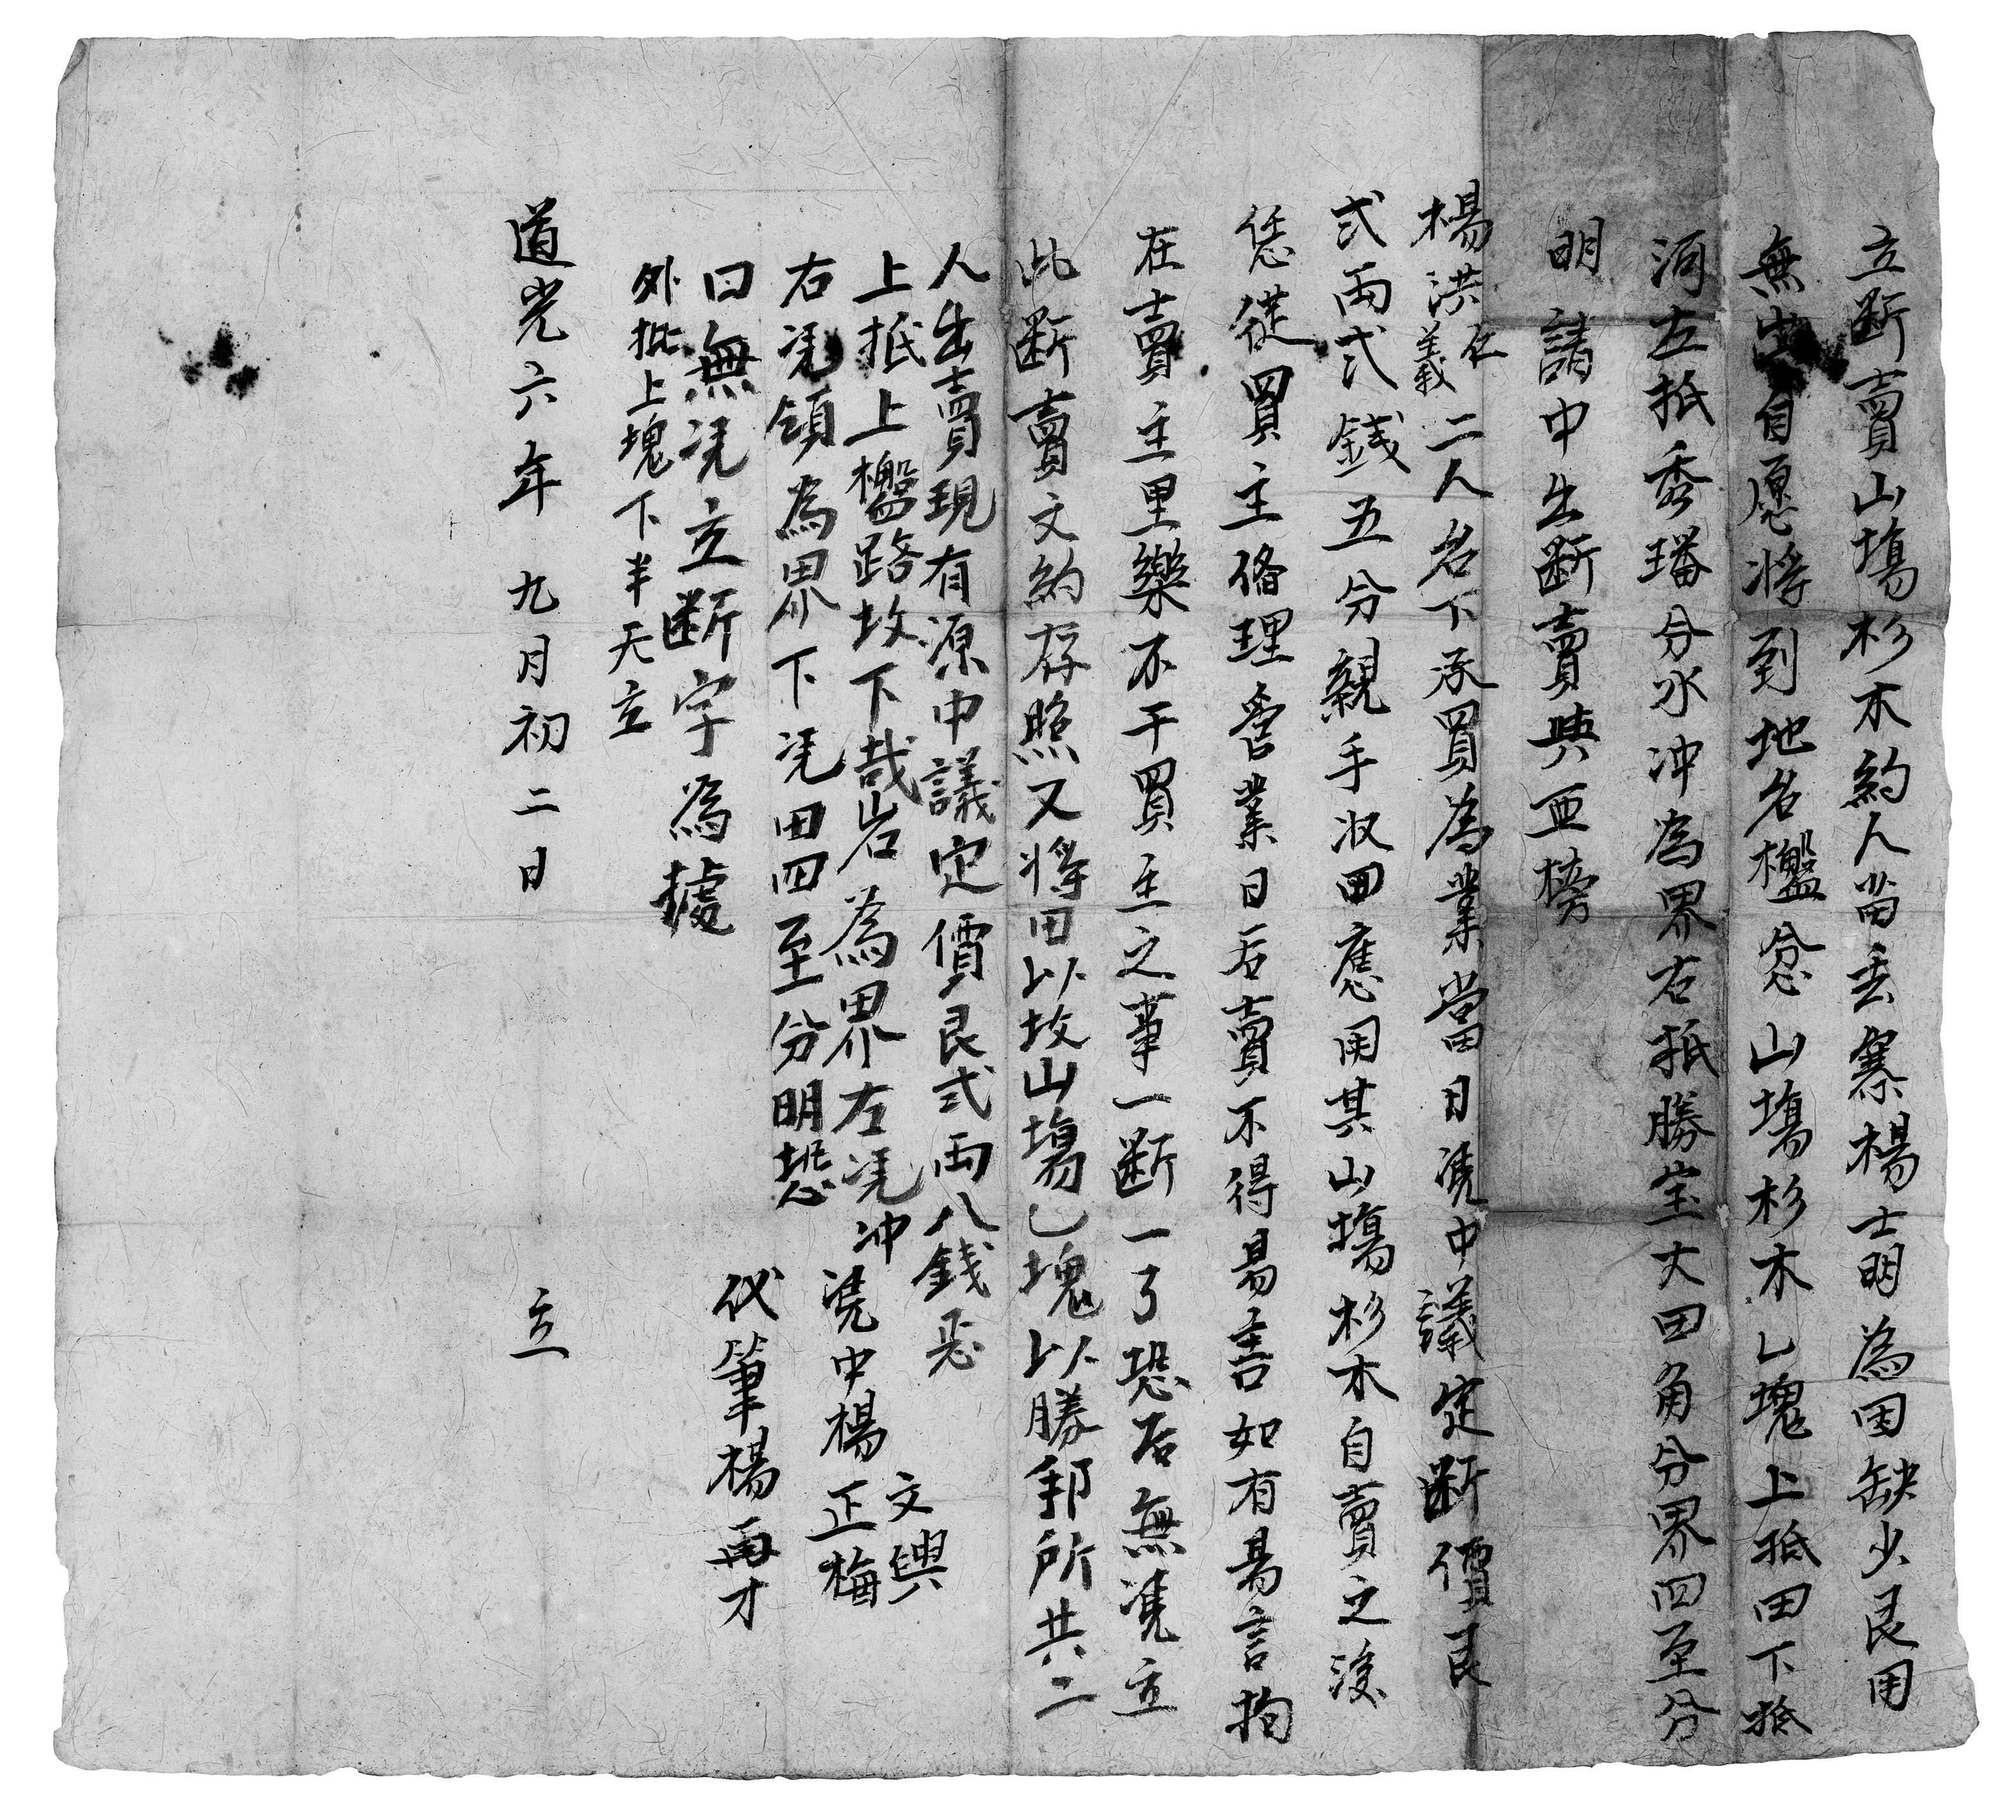 立断賣山塲杉木約人畄丢寨楊士明為因缺少艮用
無出自愿将到地名檻忿山塲杉木乚塊上抵田下抵
河左抵秀璠分水冲為界右抵勝宝大田角分界四至分
明請中出断賣與亜榜
楊洪仁義二人名下承買為業當日凴中議定断價艮
弍両弍錢五分親手汉回應用其山塲杉木自賣之後
恁從買主脩理管業日后賣不得易言如有易言拘
在賣主里樂不干買主之事一断一了恐后無凴立
此断賣文約存照又将田以坟山塲乚塊以勝郅所共二
人出賣現有源中議定價艮弍両八錢恐
上抵上檻路坟下哉岩為界左凴冲
右凴領為界下凴田四至分明恐
口無凴立断字為據
外批上塊下半天立
凴中楊文興正梅
代筆楊再才
道光六年九月初二日立